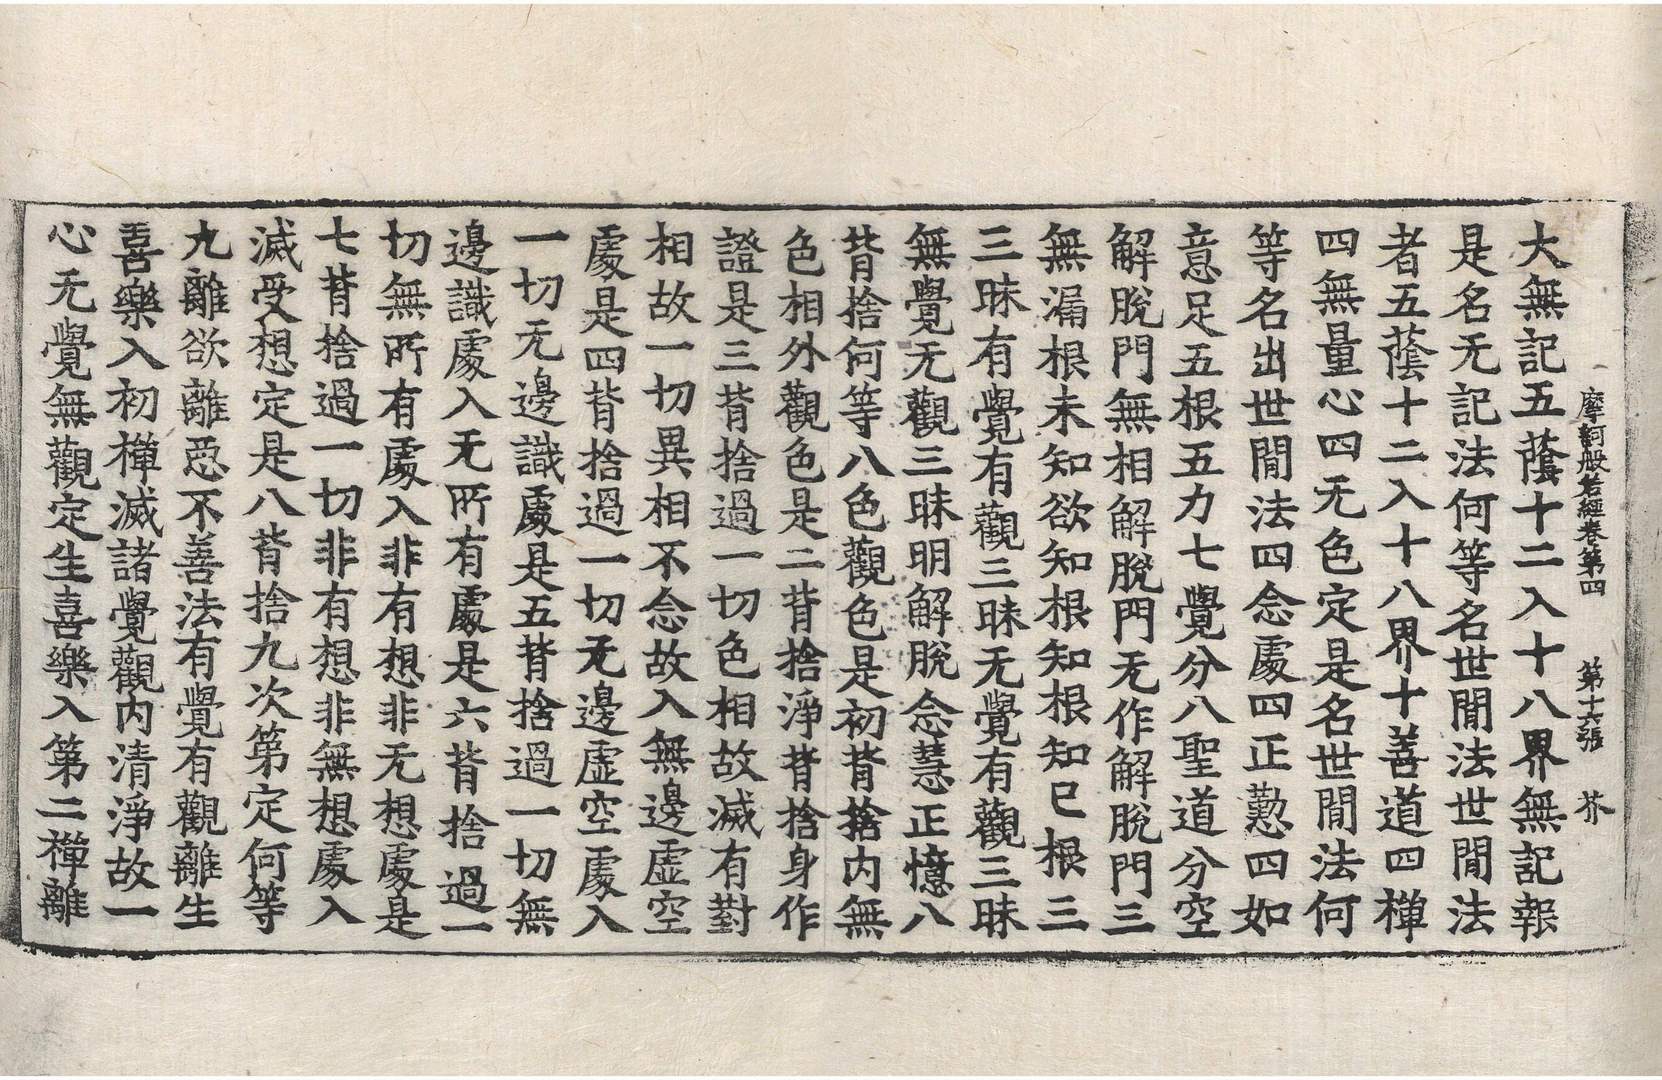 摩訶般若經卷第四　第十六張　芥
大無記五蔭十二入十八界無記報
是名无記法何等名世閒法世閒法
者五蔭十二入十八界十善道四禪
四無量心四无色定是名世閒法何
等名出世閒法四念處四正懃四如
意足五根五力七覺分八聖道分空
解脫門無相解脫門无作解脫門三
無漏根未知欲知根知根知已根三
三昧有覺有觀三昧无覺有觀三昧
無覺无觀三昧明解脫念慧正憶八
背捨何等八色觀色是初背捨内無
色相外觀色是二背捨淨背捨身作
證是三背捨過一切色相故滅有對
相故一切異相不念故入無邊虛空
處是四背捨過一切无邊虛空處入
一切无邊識處是五背捨過一切無
邊識處入无所有處是六背捨過一
切無所有處入非有想非无想處是
七背捨過一切非有想非無想處入
滅受想定是八背捨九次第定何等
九離欲離惡不善法有覺有觀離生
喜樂入初禪滅諸覺觀内清淨故一
心无覺無觀定生喜樂入第二禪離